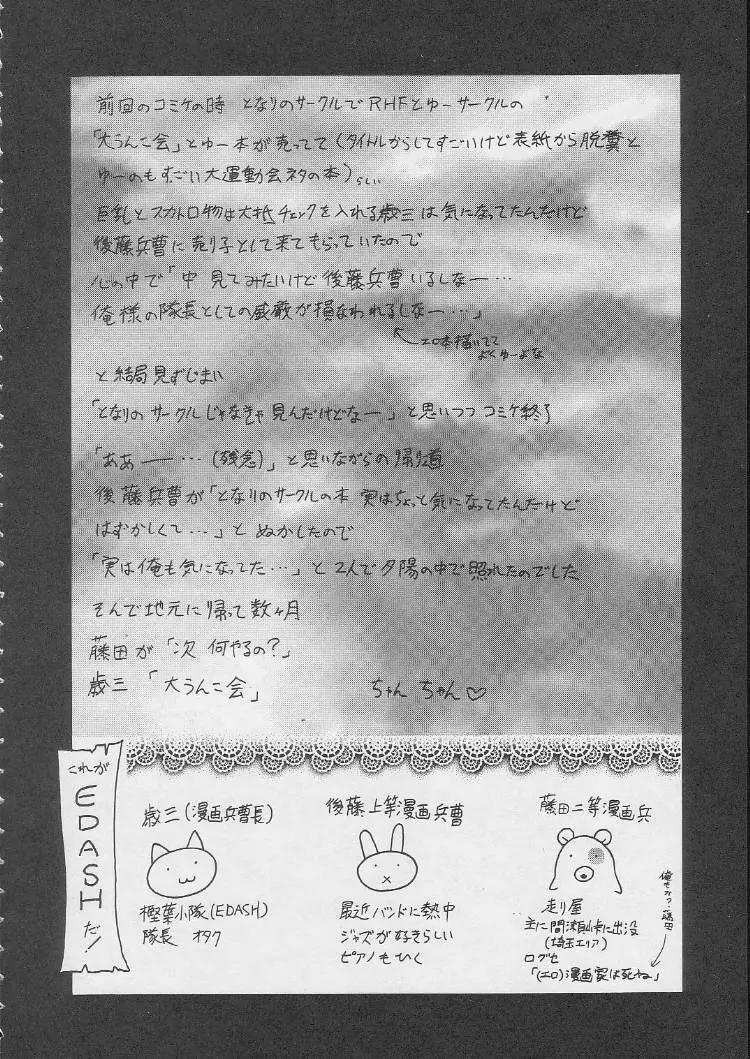 前回のコミケの時 となりのサークルでRHFとゆーサークルの
「大うんこ会」とゆー本が売ってて(タイトルからしてすごいけど表紙から脱糞と
ゆーのもすごい大運動会ネタの本)らしい
巨乳とスカトロ物は大抵チェックを入れる歳三は気になってたんだけど
後藤兵曹に売り子として来てもらっていたので
心の中で「中 見てみたいけど後藤兵曹いるしなー…
俺様の隊長としての威厳が損なわれるしなー…」
エロ本描いてて
よくゆーよな
と結局見ずじまい
「となりのサークルじゃなきゃ見んだけどなー」と思いつつコミケ終了
「ああー…(残念)」と思いながらの帰り道
後藤兵曹が「となりのサークルの本 実はちょっと気になってたんだけど
はずかしくて…」とぬかしたので
「実は俺も気になってた…」と2人で夕陽の中で照れたのでした
そんで地元に帰って数ヶ月
藤田が「次 何やるの?」
歳三「大うんこ会」 ちゃんちゃん♡
これが
EDASHだ!
歳三(漫画兵曹長)
樫葉小隊(EDASH)
隊長 オタク
後藤上等漫画兵曹
最近バンドに熱中
ジャズが好きらしい
ピアノもひく
藤田二等漫画兵
走り屋
主に間瀬峠に出没
(埼玉エリア)
ログセ
「(エロ)漫画家は死ね」
俺もか?藤田